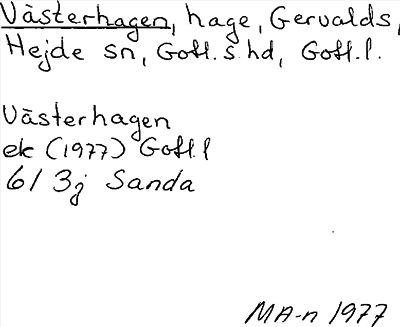 Västerhagen, hage, Gervalds,
Hejde sn, Gotl. s. hd, Gotl. l.
Västerhagen
ek (1977) Gotl. l
6I 3j Sanda
MA-n 1977